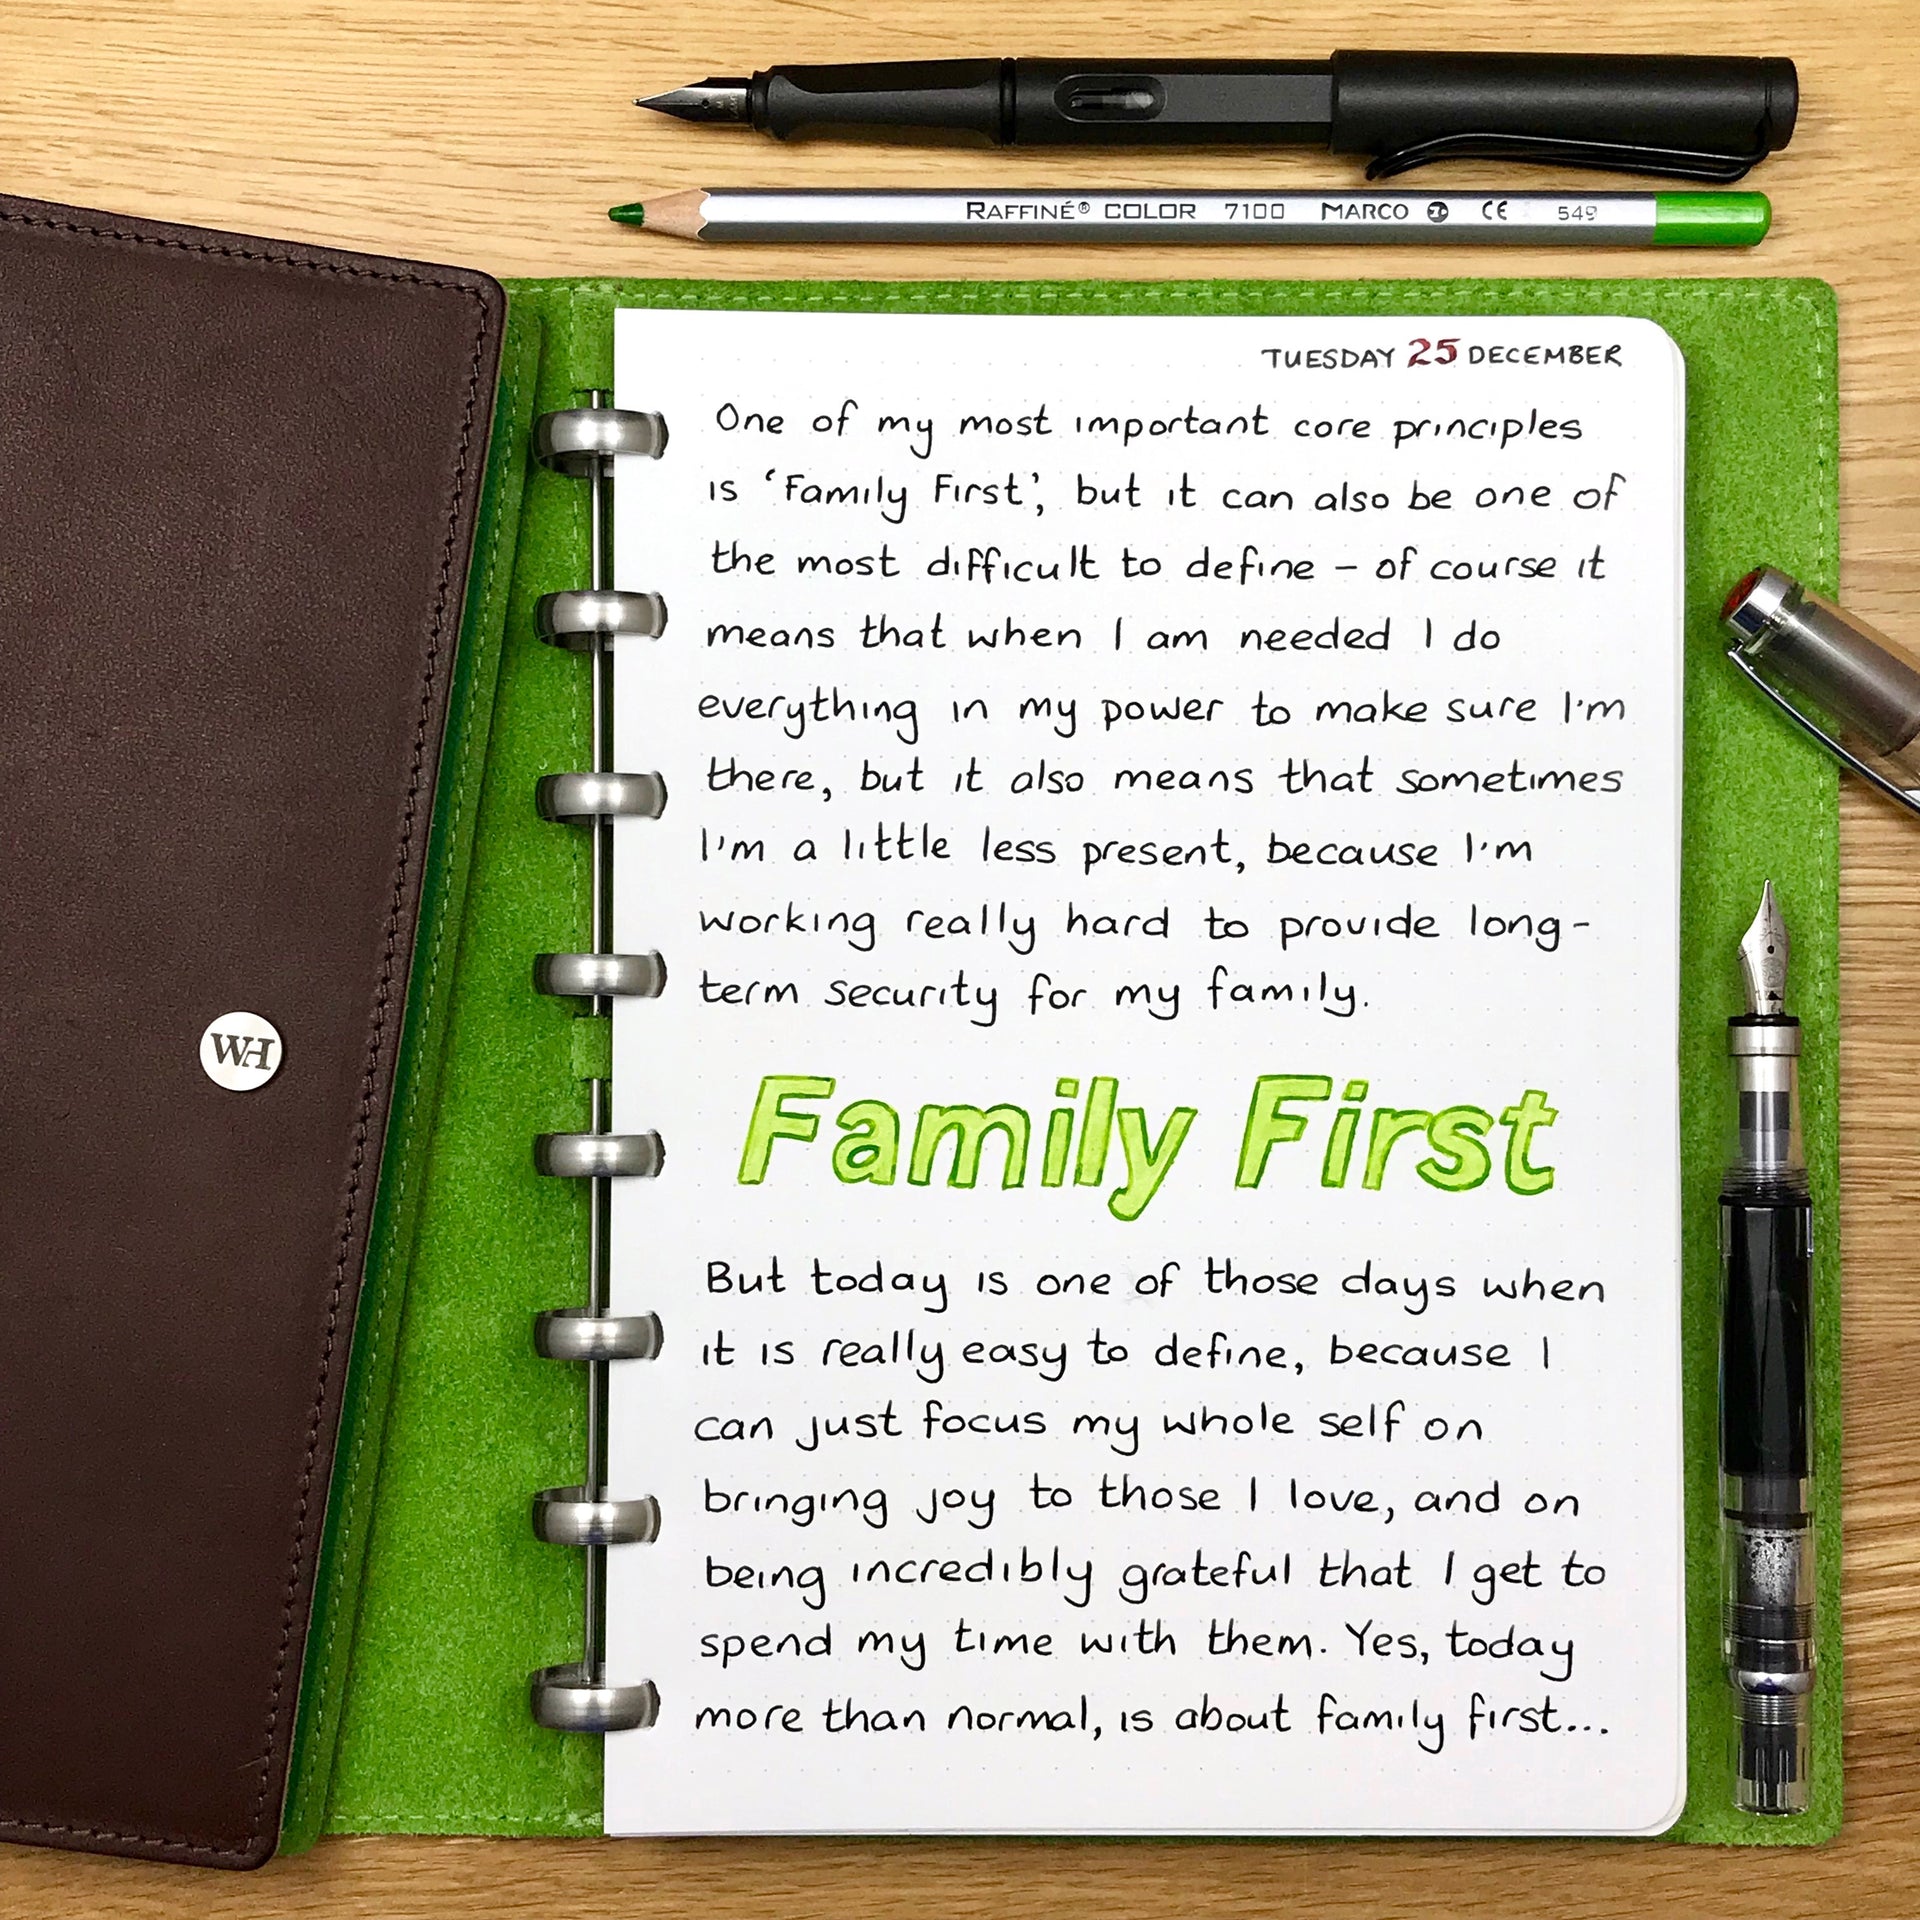 RAFFINÉ® COLOR 7100 MARCO CE 549
TUESDAY 25 DECEMBER
One of my most important core principles
is ‘Family First’, but it can also be one of
the most difficult to define – of course it
means that when I am needed I do
everything in my power to make sure I'm
there, but it also means that sometimes
I'm a little less present, because I'm
working really hard to provide long-
term security for my family.
WH
Family First
But today is one of those days when
it is really easy to define, because I
can just focus my whole self on
bringing joy to those I love, and on
being incredibly grateful that I get to
spend my time with them. Yes, today
more than normal, is about family first...